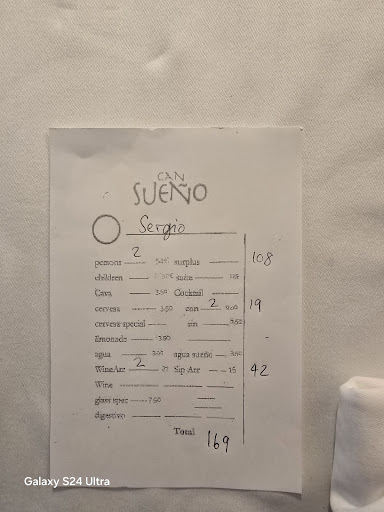 CAN
SUEÑO
Sergio
persons 2 surplus 108
children suite
Cava 3.50 Cocktail
cervesa 3.50 con 2 9.50 19
cervesa special sin 8.50
limonade 3.50 -
agua 3.00 agua sueño 3.50
WineArr 2 21 Sip Arr 15 42
Wine
glass spec 7.50
digestivo
Total 169
Galaxy S24 Ultra